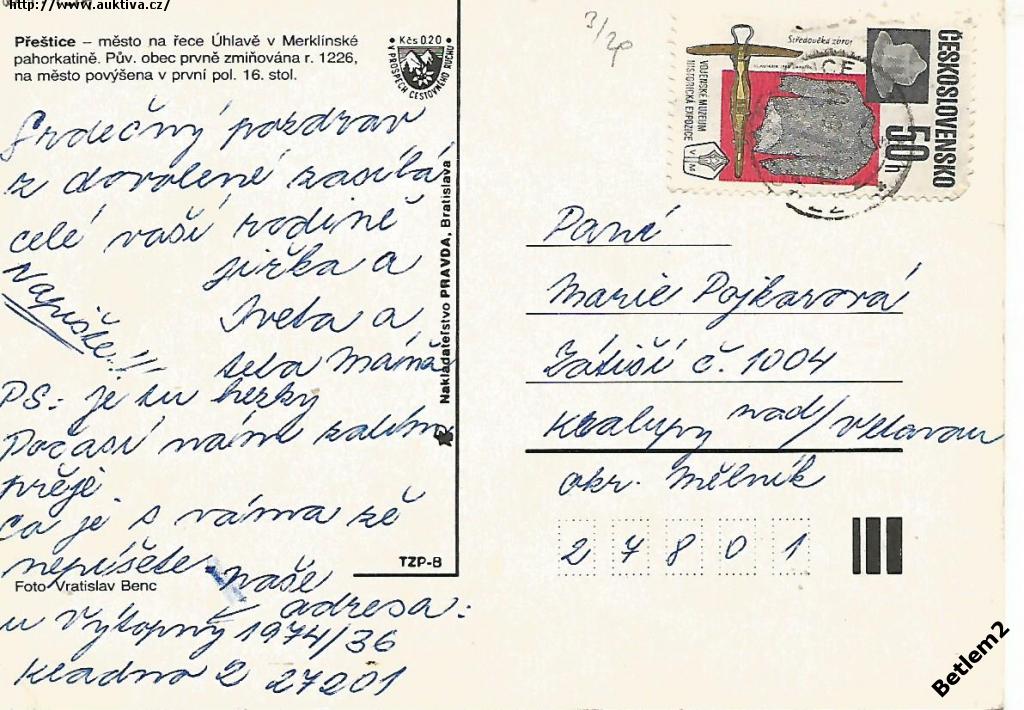 http://www.auktiva.cz/
Přeštice – město na řece Úhlavě v Merklínské
pahorkatině. Pův. obec prvně zmiňována r. 1226,
na město povýšena v první pol. 16. stol.
Kčs 0.20
V PROSPĚCH CESTOVNÍHO RUCHU
Srdečný pozdrav
z dovolené zasílá
celé vaší rodině
jirka a
Iveta a
teta Máňa
Napište!!!
PS: je tu hezky
Počasí nám zatím
přeje.
Co je s váma že
nepíšete.
naše
adresa:
u Výtopny 1974/36
Kladno 2 27201
Foto Vratislav Benc
TZP-B
Nakladateľstvo PRAVDA, Bratislava
3/2p
Středověká zbroj
VOJENSKÉ MUZEUM
HISTORICKÁ EXPOZICE
VM
50h
ČESKOSLOVENSKO
Paní
Marie Pojkarová
Zátiší č. 1004
Kralupy nad/Vltavou
okr. Mělník
27801
Betlem2